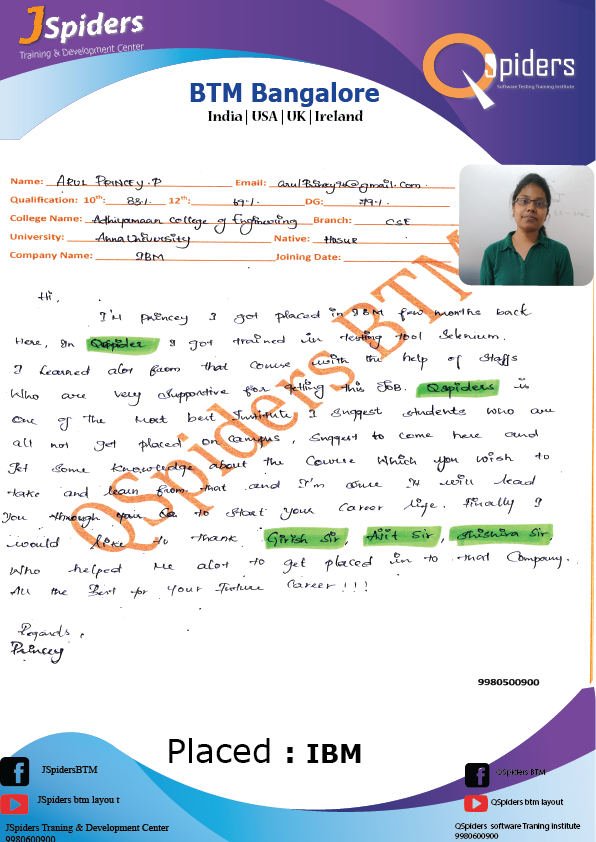 JSpiders
Training & Development Center
QSpiders
Software Testing Training Institute
BTM Bangalore
India | USA | UK | Ireland
Name: ARUL PRINCEY.P Email: arulprincy94@gmail.com
Qualification: 10th: 88% 12th: 69% DG: 79%
College Name: Adhiyamaan College of Engineering Branch: CSE
University: Anna University Native: Hosur
Company Name: IBM Joining Date:
QSpiders BTM
Hi,
I'm princey I got placed in IBM few months back
Here, In Qspider I got trained in testing tool Selenium.
I Learned alot from that course with the help of staffs
Who are very supportive for getting this Job. Qspiders is
one of the most best Institute I suggest students who are
all not get placed on campus, suggest to come here and
Get some knowledge about the Course Which you wish to
take and learn from that and I'm sure It will lead
You through your to start your Career life. Finally I
would like to thank Girish Sir, Ajit Sir, Shishira Sir.
Who helped me alot to get placed in to that Company.
All the Best for Your Future Career !!!
Regards,
Princey
9980500900
Placed : IBM
JSpidersBTM
JSpiders btm layou t
JSpiders Traning & Development Center
9980600900
QSpiders BTM
QSpiders btm layout
QSpiders software Traning Institute
9980600900